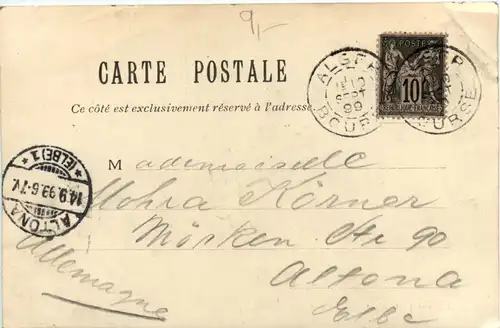 9,-
CARTE POSTALE
Ce côté est exclusivement réservé à l'adresse
ALGER
SEPT
99
BOURSE
POSTE
10
RÉPUBLIQUE FRANÇAISE
Mademoiselle
Körner
90
Altona
Elbe
Allemagne
ALTONA
14.9.99.6-7V.
*(ELBE)1*